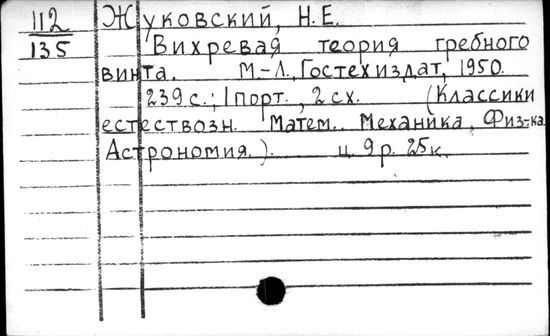 112 Жуковский, Н.Е.
135 Вихревая теория гребного
винта. М-Л., Гостехиздат, 1950.
239 с.; 1 порт., 2 сх. (Классики
естествозн. Матем. Механика, Физ-ка.
Астрономия.). ц. 9 р. 25 к.